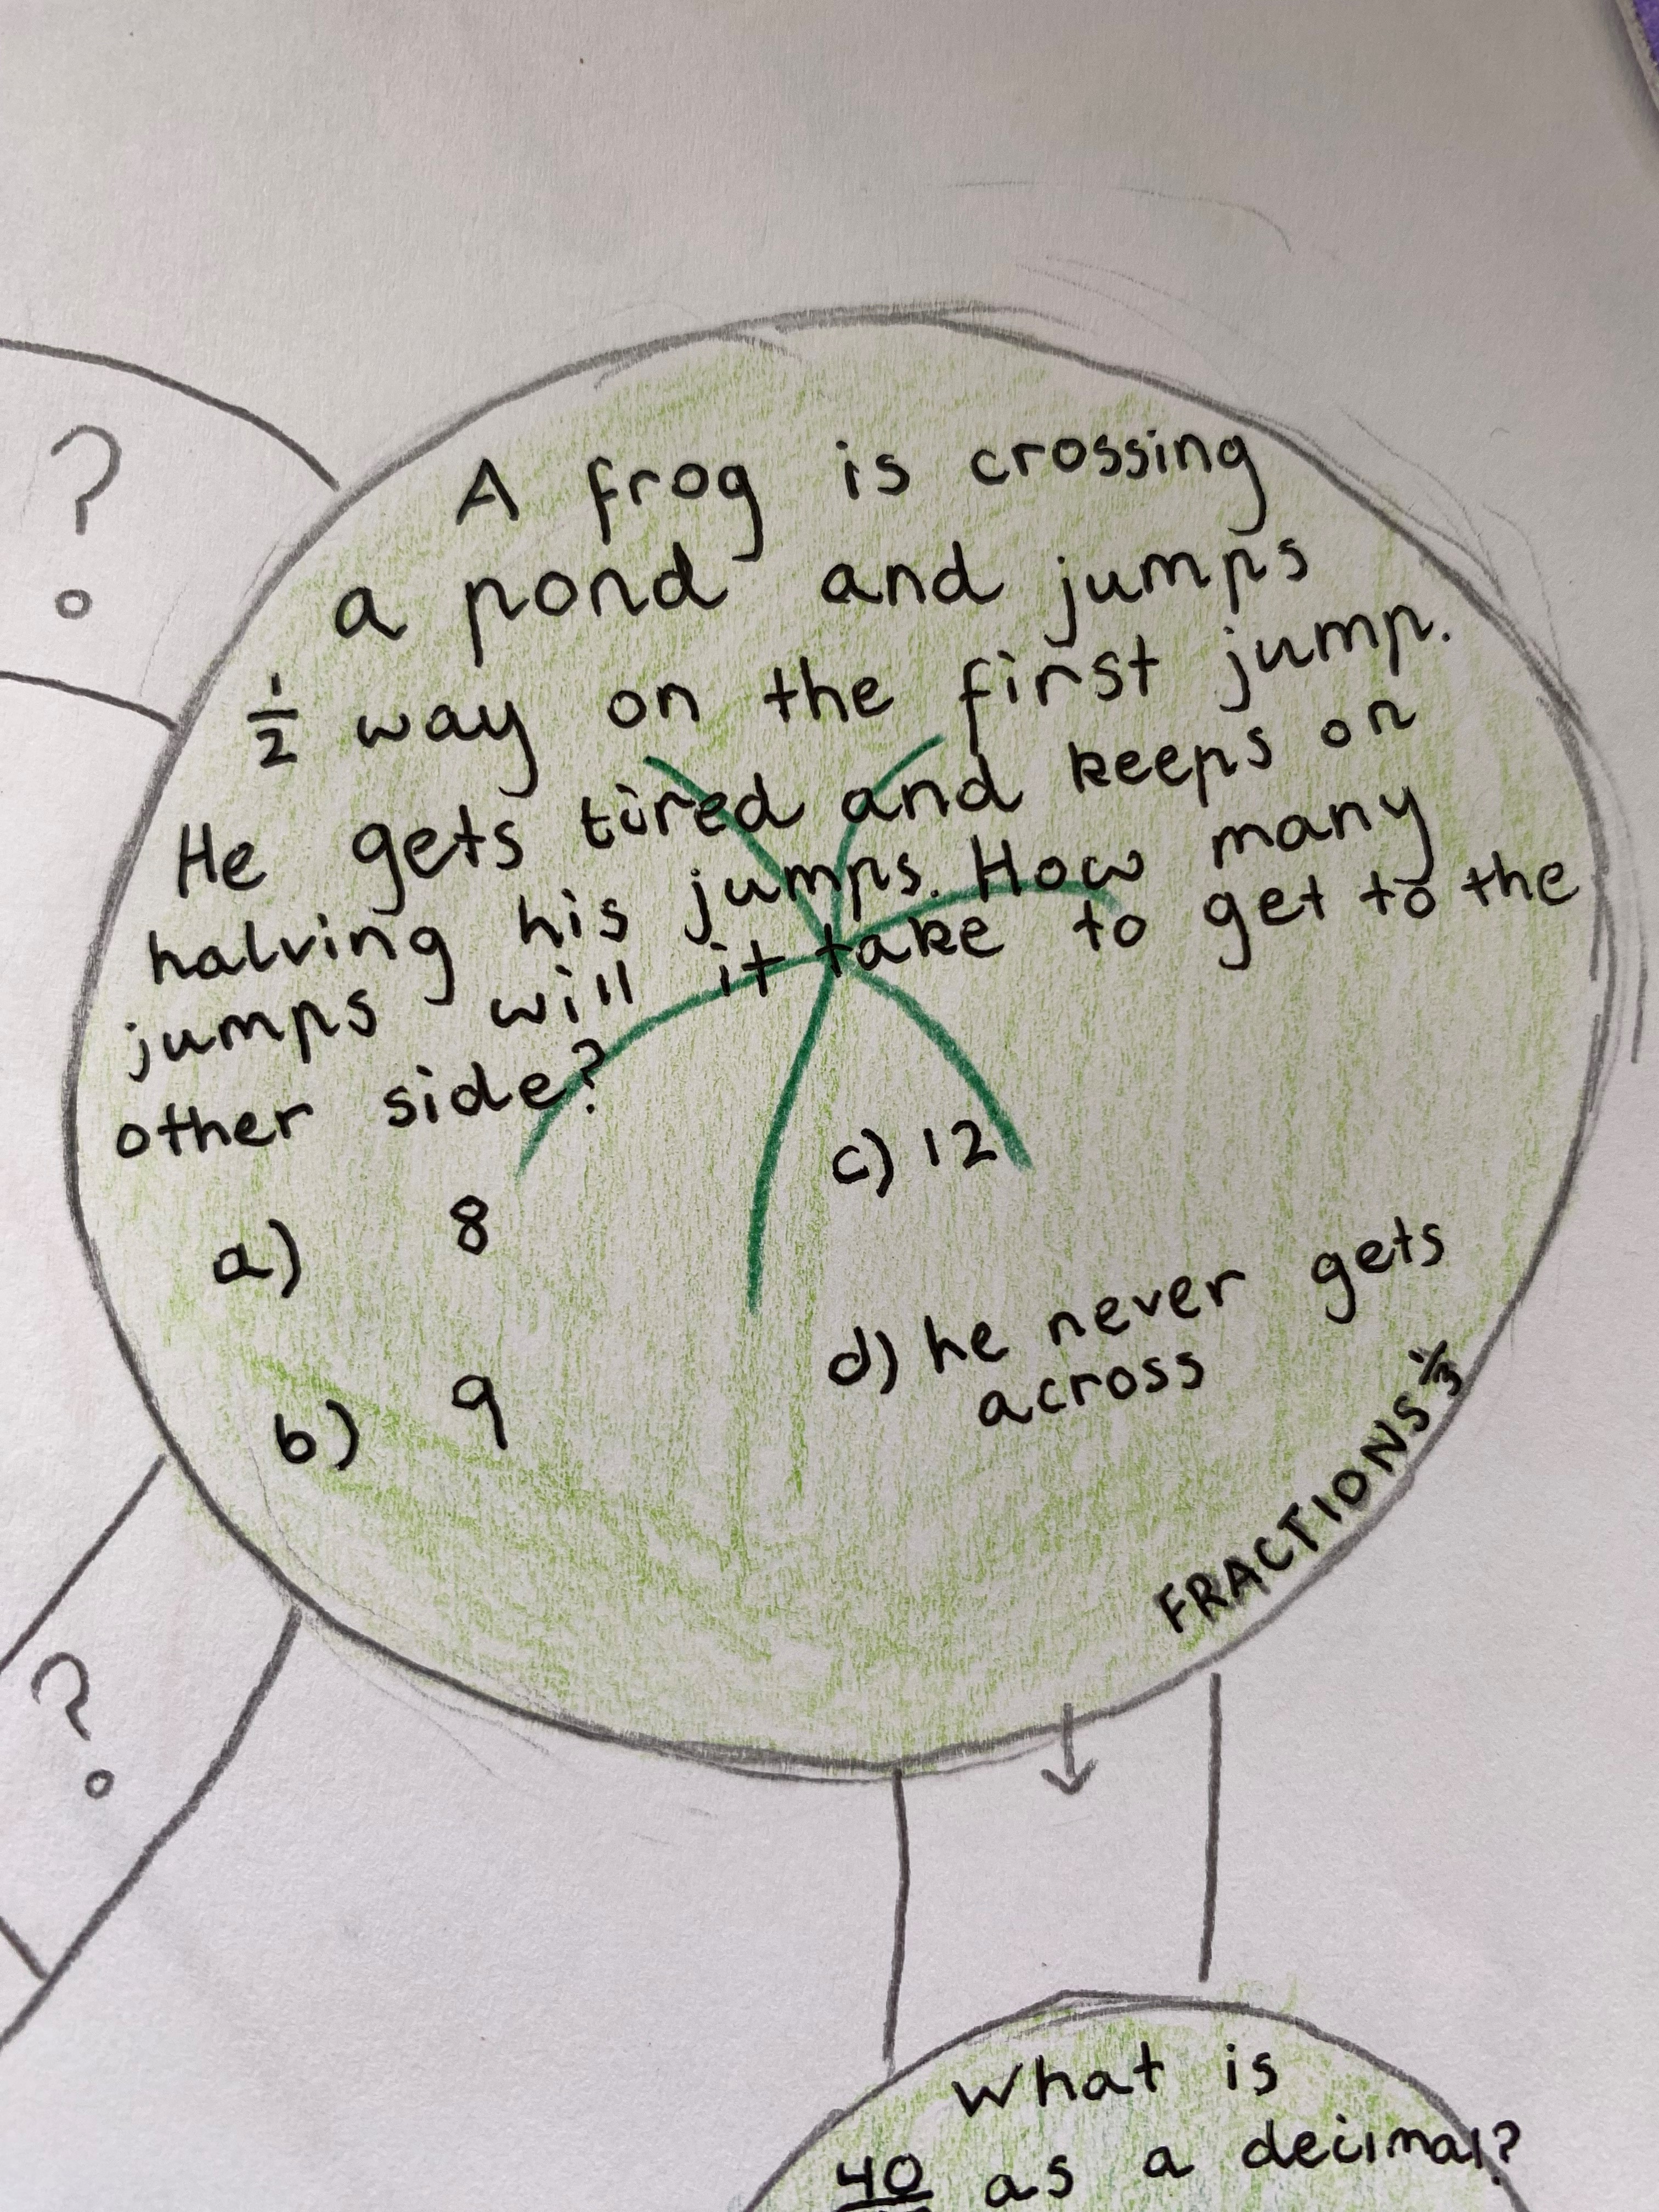 A frog is crossing
a pond and jumps
1/2 way on the first jump.
He gets tired and keeps on
halving his jumps. How many
jumps will it take to get to the
other side?
a) 8
b) 9
c) 12
d) he never gets
across
FRACTIONS 1/3
?
?
What is
40 as a decimal?